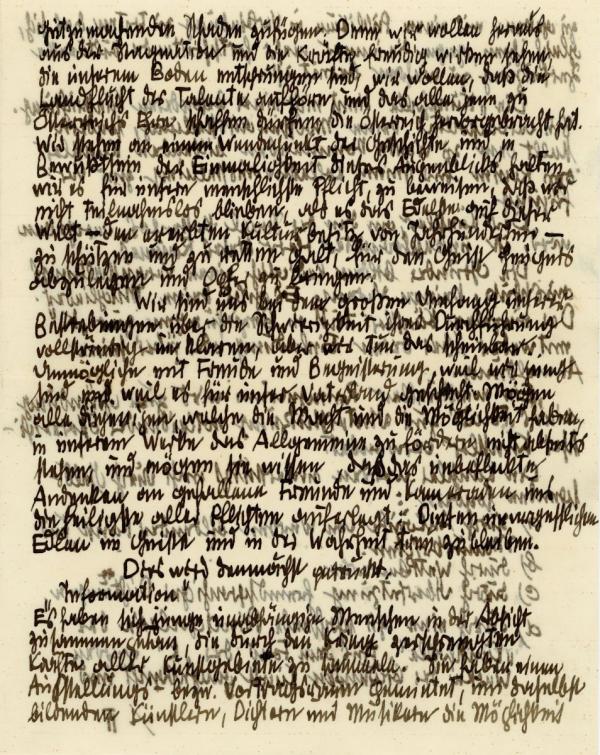 gutzumachenden Schaden zufügen. Denn wir wollen heraus
aus der Stagnation und die Kräfte freudig wirken sehen,
die unserem Boden entsprungen sind, wir wollen, daß die
Landflucht der Talente aufhöre, und daß alle jene zu
Österreichs Ehre schaffen dürfen, die Österreich hervorgebracht hat.
Wir stehen an einem Wendepunkt der Geschichte und im
Bewußtsein der Einmaligkeit dieses Augenblicks halten
wir es für unsere menschlichste Pflicht, zu beweisen, daß wir
nicht teilnahmslos blieben, als es das Edelste auf dieser
Welt – den ererbten Kulturbesitz von Jahrhunderten –
zu schützen und zu retten galt, für den Geist Zeugnis
abzulegen und Opfer zu bringen.
Wir sind uns bei dem großen Umfang unserer
Bestrebungen über die Schwierigkeit ihrer Durchführung
vollständig im Klaren, aber wir tun das scheinbar
Unmögliche mit Freude und Begeisterung, weil wir
sind und weil es für unser Vaterland geschieht. Mögen
alle diejenigen, welche die Macht und die Möglichkeit haben,
in unserem Werke das Allgemeine zu fördern, nicht abseits
stehen, und mögen sie wissen, daß das unbefleckte
Andenken an gefallene Freunde und Kameraden uns
die heiligste aller Pflichten auferlegt: Diesen unvergesslichen
Edlen im Geiste und in der Wahrheit treu zu bleiben.
Dies wird demnächst gedruckt.
"Information"
Es haben sich junge unabhängige Menschen in der Absicht
zusammengetan, die durch den Krieg versprengten
Kräfte aller Kunstgebiete zu sammeln. Sie haben einen
Ausstellungs- bezw. Vortragsraum gemietet, um daselbst
bildenden Künstlern, Dichtern und Musikern die Möglichkeit